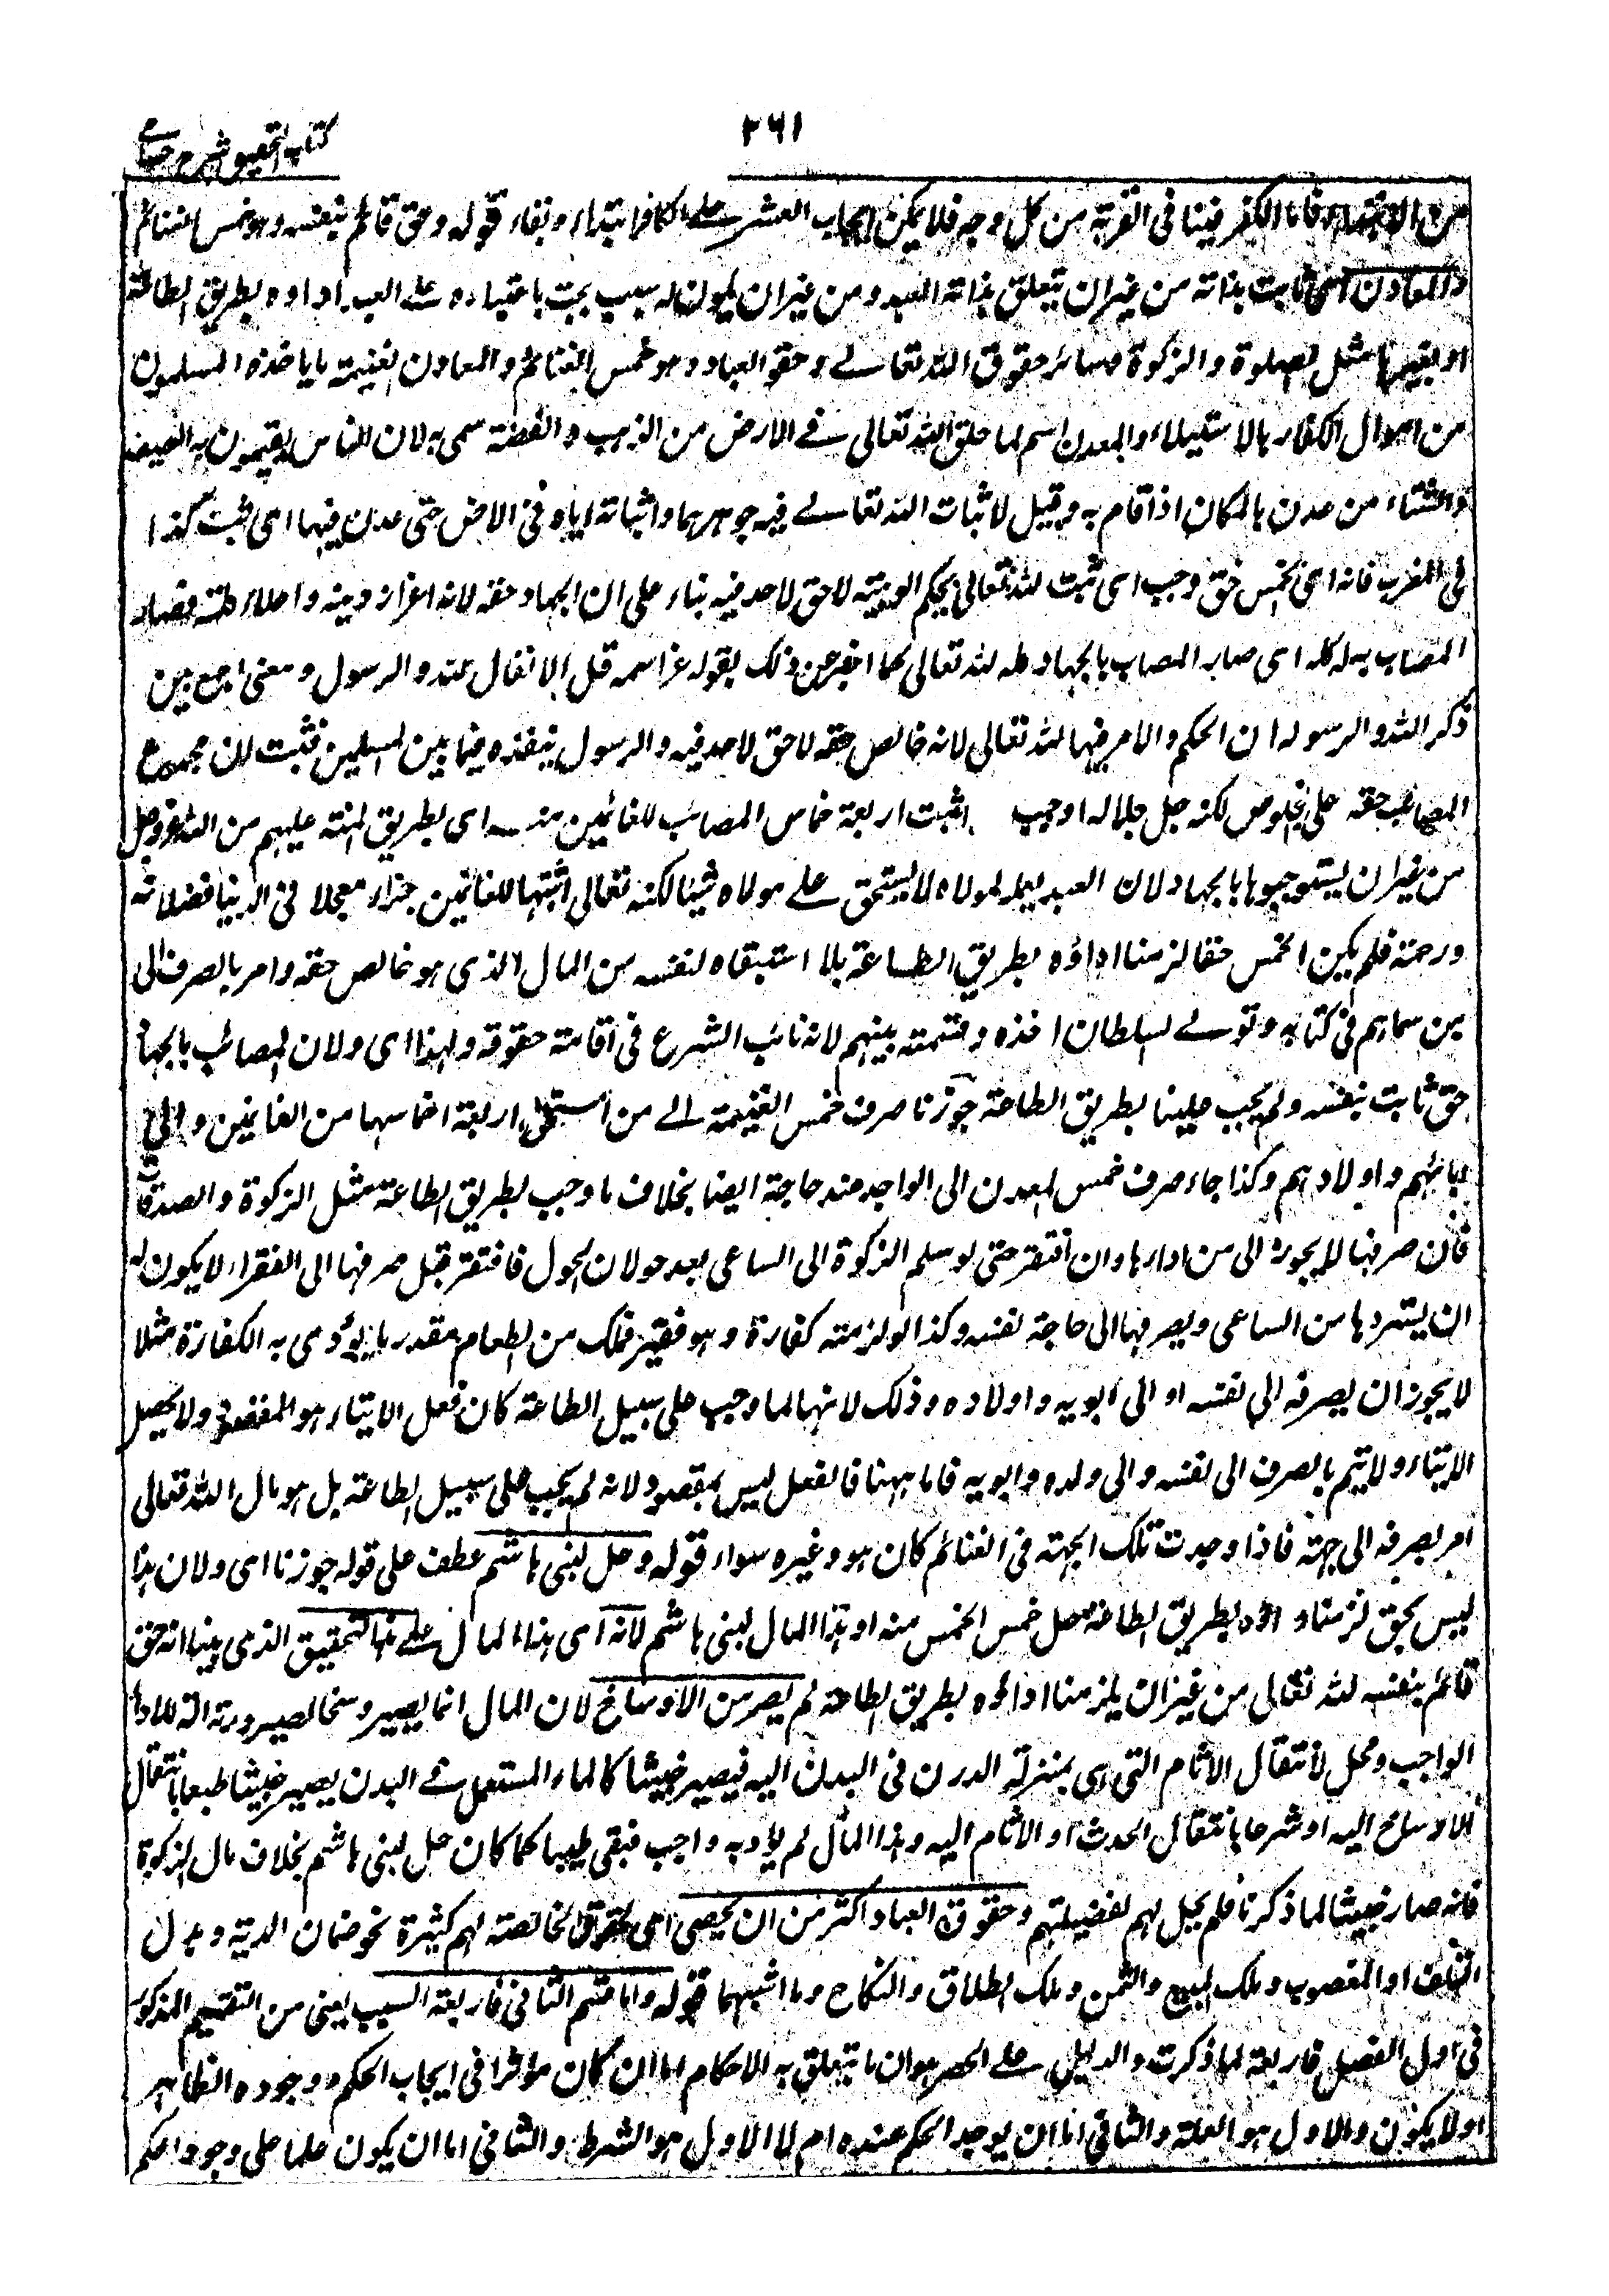 ٢٦١
كتاب التحقيق شرح حسامی
من الابتداء فاما الكفر فينافى القربة من كل وجه فلا يمكن ايجاب العشر على الكافر ابتداء وبقاء قوله وحق قائم بنفسه وهو خمس الغنائم
والمعادن اى ثابت بذاته من غير ان يتعلق بذاته العبد ومن غير ان يكون له سبب يجب باعتباره على العبد اداؤه بطريق الطاعة
او بغيرها مثل الصلوة والزكوة وسائر حقوق الله تعالى وحقوق العباد وهو خمس الغنائم والمعادن الغنيمة ما ياخذه المسلمون
من اموال الكفار بالاستيلاء والمعدن اسم لما خلق الله تعالى فى الارض من الذهب والفضة سمى به لان الناس يقيمون به الصيف
والشتاء من عدن بالمكان اذا قام به وقيل لاثبات الله تعالى فيه جوهرهما واثباته اياه فى الارض حتى عدن فيها اى ثبت كذا
فى المغرب فانه اى الخمس حق وجب اى ثبت لله تعالى بحكم الوهيته لا حق لاحد فيه بناء على ان الجهاد حقه لانه اعزاز دينه واعلاء كلمته فصار
المصاب به له كله اى صار المصاب بالجهاد كله لله تعالى كما اخبر عن ذلك بقوله عز اسمه قل الانفال لله والرسول ومعنى الجمع بين
ذكر الله والرسول ان الحكم والامر فيها لله تعالى لانه خالص حقه لا حق لاحد فيه والرسول ينفذه فيما بين المسلمين فثبت ان مجموع
المصاب حقه على الخلوص لكنه جل جلاله اوجب اثبت اربعة اخماس المصاب للغانمين منه اى بطريق المنة عليهم من الله عز وجل
من غير ان يستوجبوها بالجهاد لان العبد بعمله لمولاه لا يستحق على مولاه شيئا لكنه تعالى اثبتها للغانمين جزاء معجلا فى الدنيا فضلا منه
ورحمة فلم يكن الخمس حقا لزمنا اداؤه بطريق الطاعة بل استبقاه لنفسه من المال الذى هو خالص حقه وامر بالصرف الى
من سماهم فى كتابه وتولى السلطان اخذه وقسمته بينهم لانه نائب الشرع فى اقامة حقوقه ولهذا اى ولان المصاب بالجهاد
حق ثابت بنفسه ولم يجب علينا بطريق الطاعة جوزنا صرف خمس الغنيمة الى من استحق اربعة اخماسها من الغانمين والى
ابائهم واولادهم وكذا جاز صرف خمس المعدن الى الواجد عند حاجة ايضا بخلاف ما وجب بطريق الطاعة مثل الزكوة والصدقات
فان صرفها لا يجوز الى من اداها وان افتقر حتى لو سلم الزكوة الى الساعى بعد حولان الحول فافتقر قبل صرفها الى الفقراء لا يكون له
ان يستردها من الساعى ويصرفها الى حاجة نفسه وكذا لو لزمته كفارة وهو فقير فملك من الطعام مقدار ما يؤدى به الكفارة مثلا
لا يجوز ان يصرفه الى نفسه او الى ابويه واولاده وذلك لانها لما وجب على سبيل الطاعة كان فعل الايتاء هو المقصود ولا يحصل
الايتاء ولا يتم بالصرف الى نفسه والى ولده وابويه فاما ههنا فالفعل ليس بمقصود لانه لم يجب على سبيل الطاعة بل هو مال الله تعالى
امر بصرفه الى جهة فاذا وجدت تلك الجهة فى الغنائم كان هو وغيره سواء قوله وحل لبنى هاشم عطف على قوله جوزنا اى ولان هذا
ليس بحق لزمنا اداؤه بطريق الطاعة حل خمس الخمس منه او هذا المال لبنى هاشم لانه اى هذا المال على هذا التحقيق الذى بينا انه حق
قائم بنفسه لله تعالى من غير ان يلزمنا اداؤه بطريق الطاعة لم يصر من الاوساخ لان المال انما يصير وسخا لصيرورته الة لاداء
الواجب ومحل لانتقال الاثام التى هى بمنزلة الدرن فى البدن اليه فيصير خبيثا كالماء المستعمل فى البدن يصير خبيثا طبعا بانتقال
الاوساخ اليه او شرعا بانتقال الحدث او الاثام اليه وهذا المال لم يؤد به واجب فبقى طيبا كما كان حل لبنى هاشم بخلاف مال الزكوة
فانه صار خبيثا لما ذكرنا فلم يحل لهم لفضيلتهم وحقوق العباد اكثر من ان يحصى اى الحقوق الخالصة لهم كثيرة نحو ضمان الدية وبدل
المتلف او المغصوب وملك المبيع والثمن وملك الطلاق والنكاح وما اشبهها قوله واما القسم الثانى فاربعة السبب يعنى من التقسيم المذكور
فى اول الفصل فاربعة لما ذكرت والدليل على الحصر هو ان ما يتعلق به الاحكام اما ان كان مؤثرا فى ايجاب الحكم ووجوده الظاهر
او لا يكون والاول هو العلة والثانى اما ان يوجد الحكم عنده ام لا الاول هو الشرط والثانى اما ان يكون علما على وجود الحكم